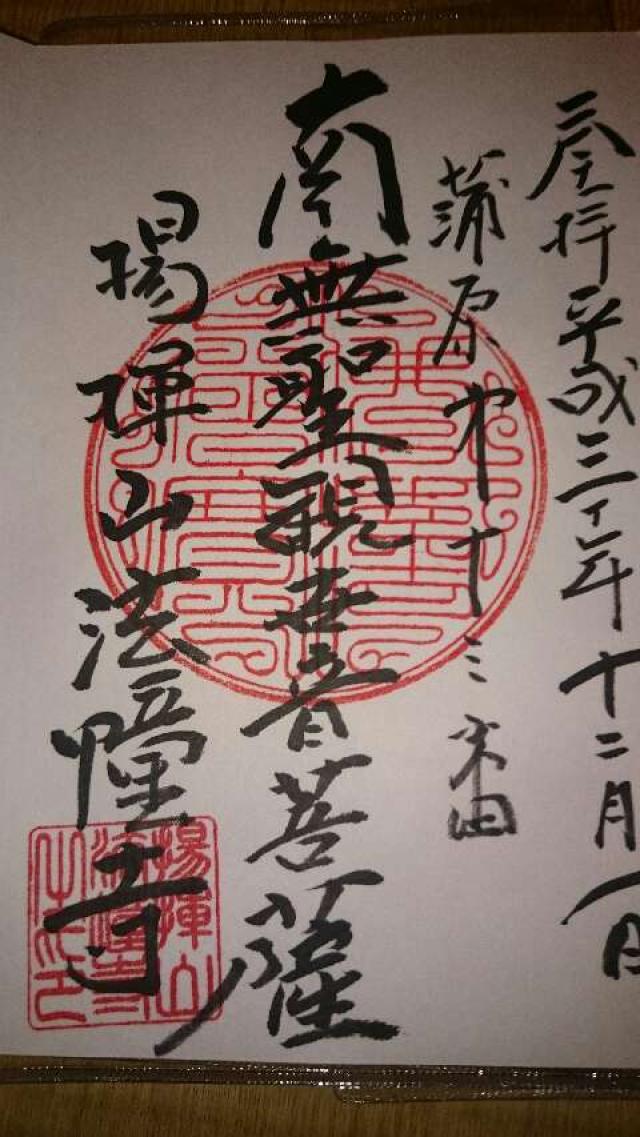 奉拝 平成三十年十二月一日
蒲原 第十三番
南無聖観世音菩薩
揚揮山 法幢寺
揚揮山
法幢寺
之印